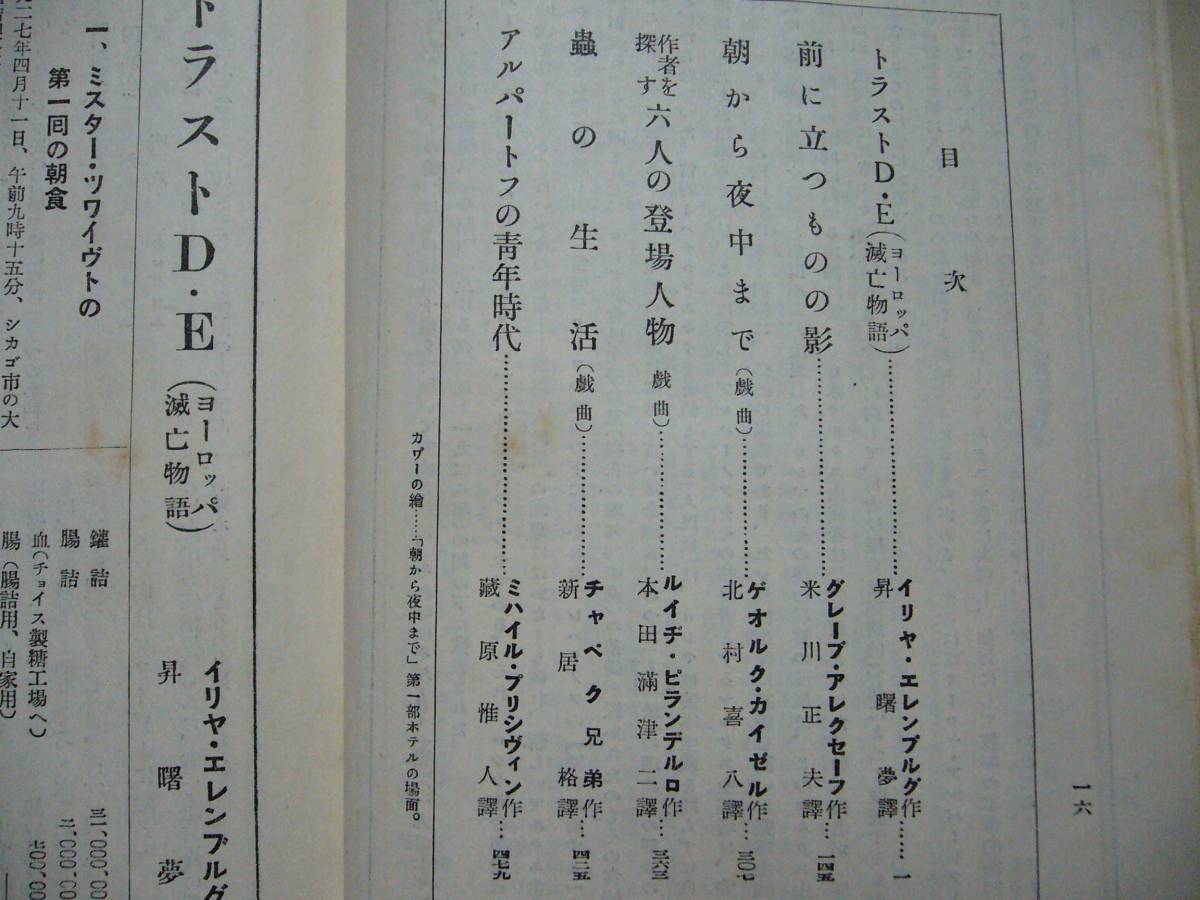 目次
トラストD・E（ヨーロッパ滅亡物語）……イリヤ・エレンブルグ作 昇曙夢譯……一
前に立つものの影……グレーブ・アレクセーフ作 米川正夫譯…一四五
朝から夜中まで（戯曲）……ゲオルク・カイゼル作 北村喜八譯…三〇七
作者を探す六人の登場人物（戯曲）……ルイヂ・ピランデルロ作 本田滿津二譯…三六三
蟲の生活（戯曲）……チャペク兄弟作 新居格譯…四二五
アルパートフの青年時代……ミハイル・プリシヴィン作 藏原惟人譯…四七九
カワーの繪……「朝から夜中まで」第一部ホテルの場面。
一六
トラストD・E（ヨーロッパ滅亡物語）
イリヤ・エレンブルグ
昇曙夢
一、ミスター・ツワイヴトの
第一囘の朝食
二七年四月十一日、午前九時十五分、シカゴ市の大
罐詰 三一、〇〇〇、〇〇
腸詰 二、〇〇〇、〇〇
血（チョイス製糖工場へ） 七〇〇、〇〇
腸（腸詰用、自家用）